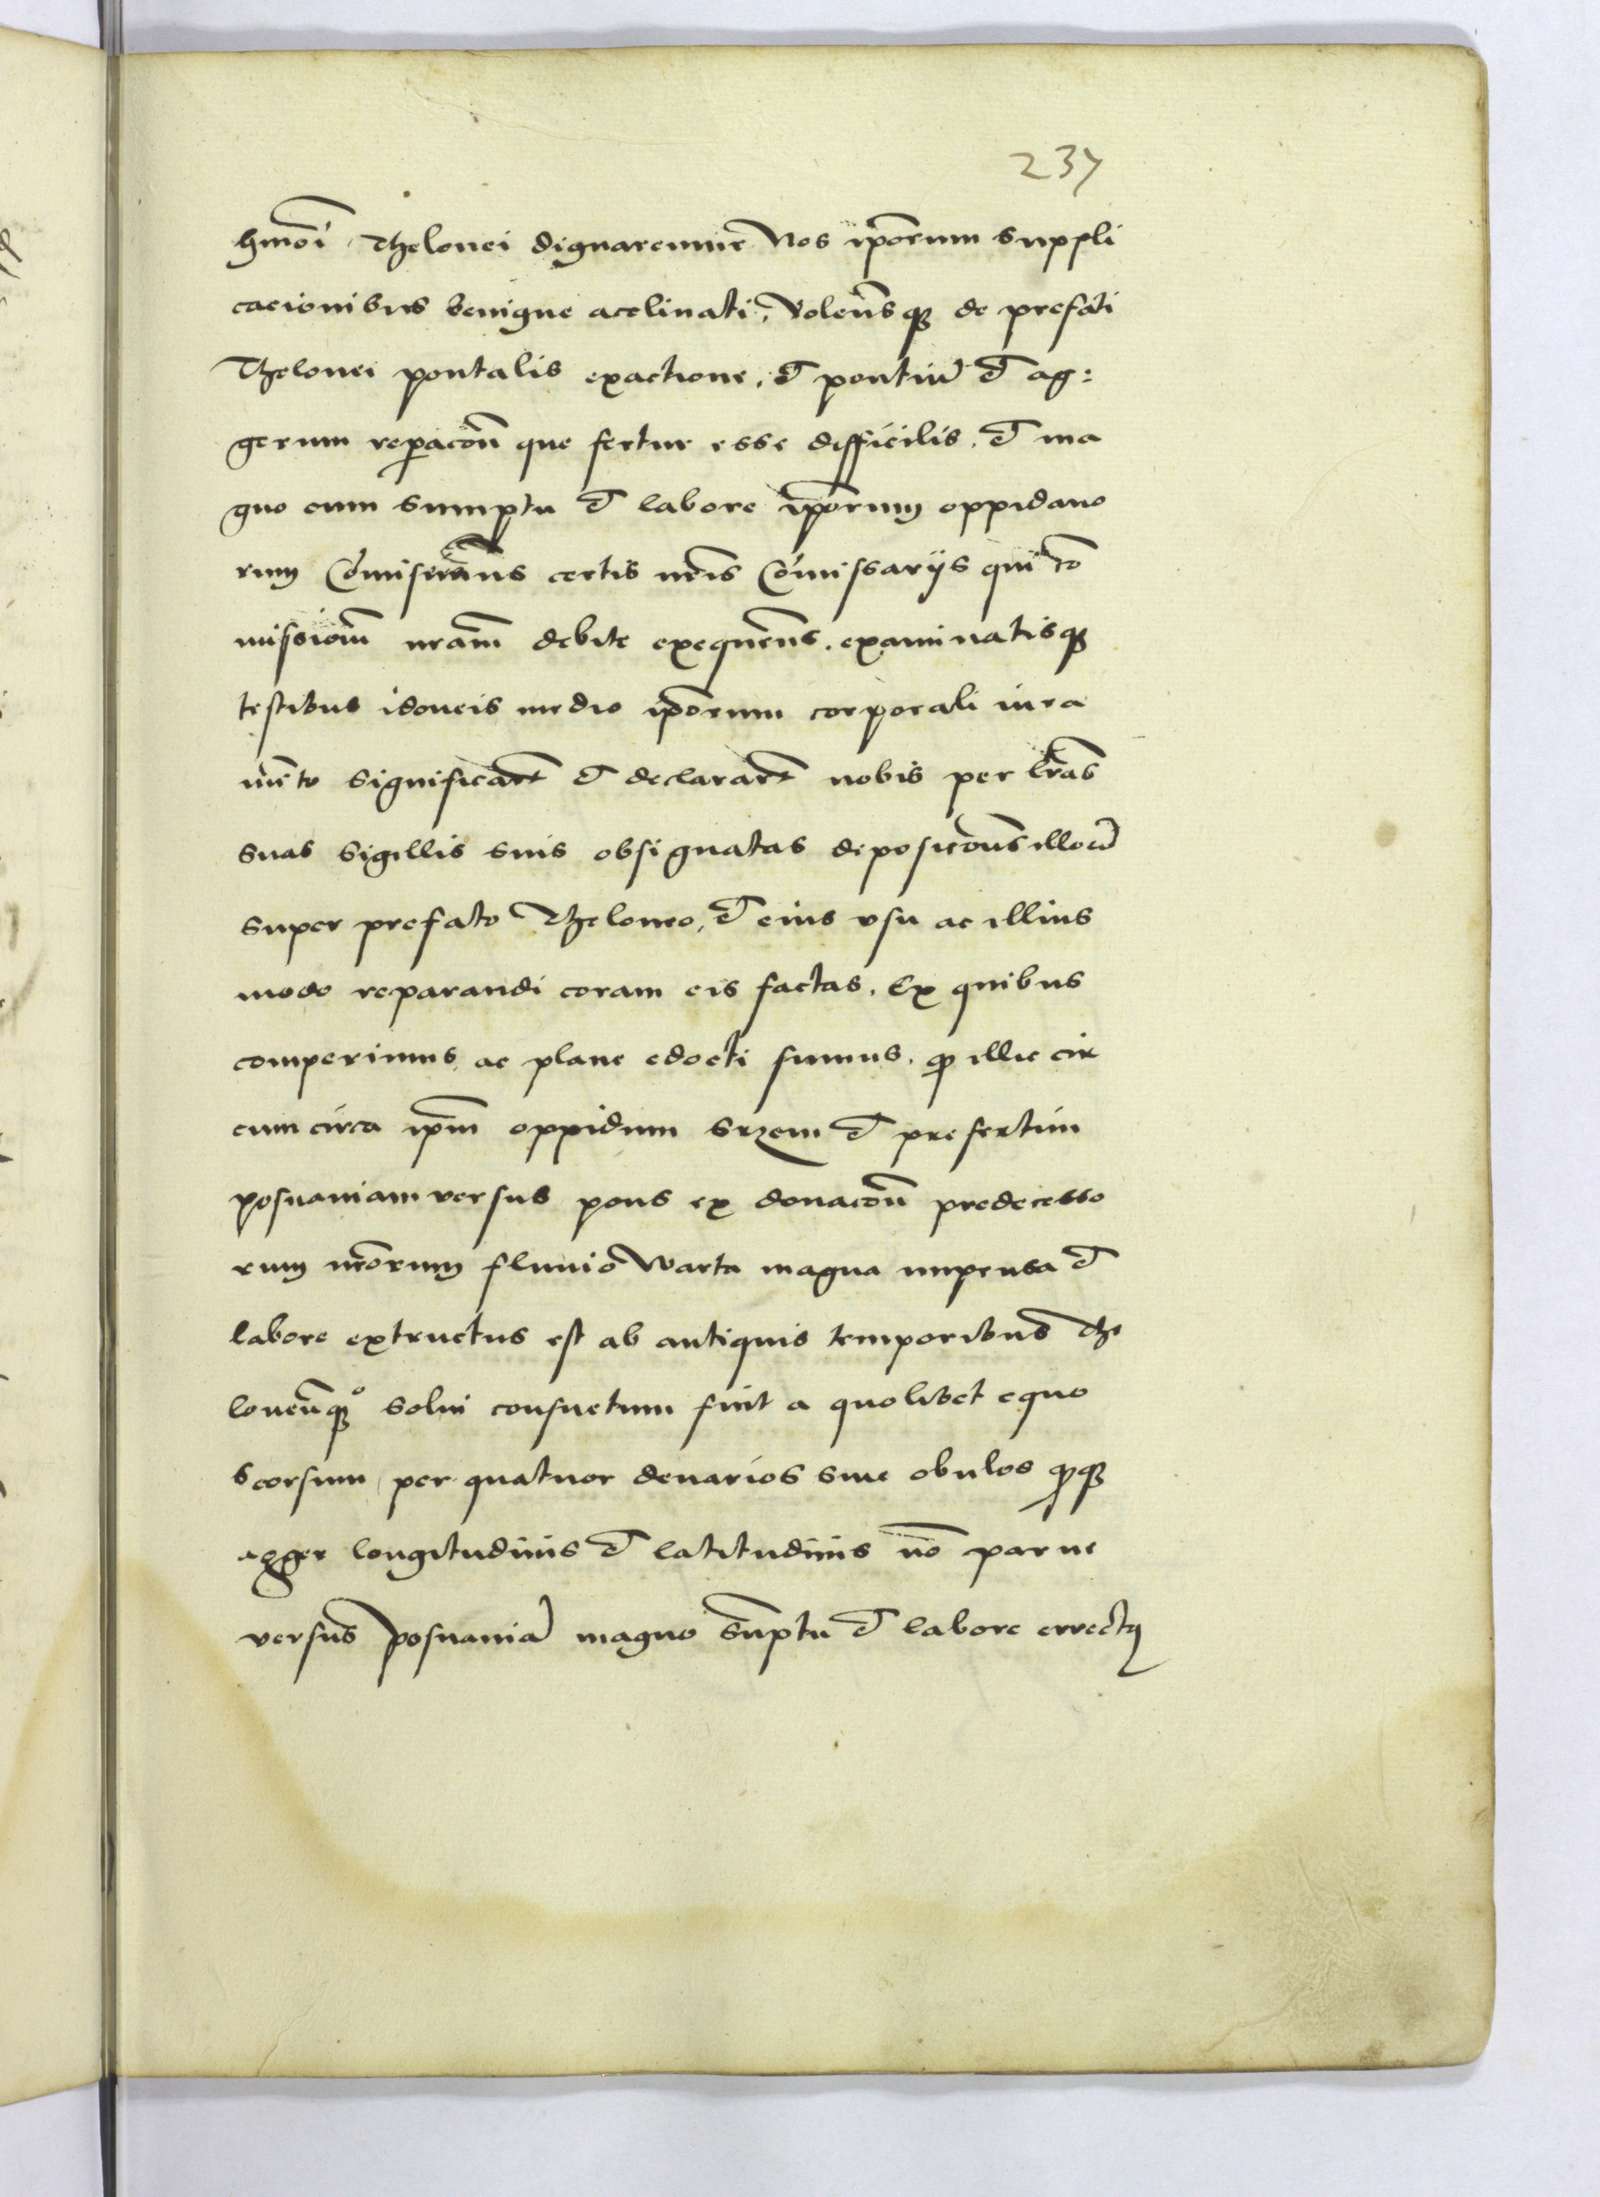 237
hmoi Thelonei dignaremur Nos iporum suppli
cacionibus benigne acclinati, Volensqz de prefati
Thelonei pontalis exactione, et pontiu et ag:
gerum repacon que fertur esse difficilis, et ma
gno cum sumptu et labore iporum oppidano
rum Comiseramus certis nris Comissarijs qui co
missionem nram debite exequens. examinatisqz
testibus idoneis medio iporum corporali iura
mento significarut et declararut nobis per lras
suas sigillis suis obsignatas deposicones illoru
super prefato Theloneo, et eius vsu ac illius
modo reparandi coram eis factas. Ex quibus
comperimus ac plane edocti sumus. qp illic cir
cumcirca ipm oppidum Srzem et presertim
posnaniam versus pons ex donacon predecesso
rum nrorum fluuio Warta magna impensa et
labore extructus est ab antiquis temporibus the
loneuqz solui consuetum fuit a quolibet equo
seorsum per quatuor denarios siue obulos qpqz
agger longitudinis et latitudinis no parue
versus Posnania magno suptu et labore errectus